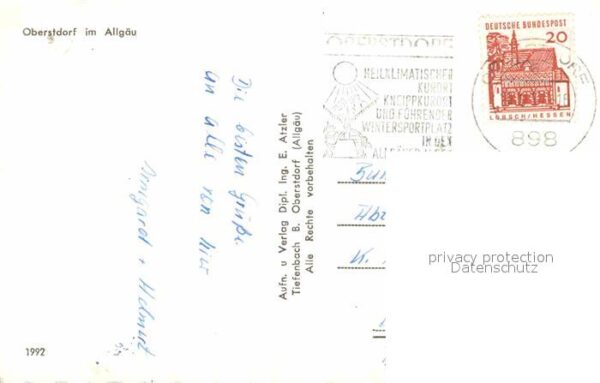 Oberstdorf im Allgäu
Die besten Grüße
an alle von hier
Irmgard + Helmut
1992
Aufn. u Verlag Dipl. Ing. E. Atzler
Tiefenbach B. Oberstdorf (Allgäu)
Alle Rechte vorbehalten
OBERSTDORF
HEILKLIMATISCHER
KURORT
KNEIPPKURORT
UND FÜHRENDER
WINTERSPORTPLATZ
IN DEN
DEUTSCHE BUNDESPOST
20
LORSCH/HESSEN
898
privacy protection
Datenschutz